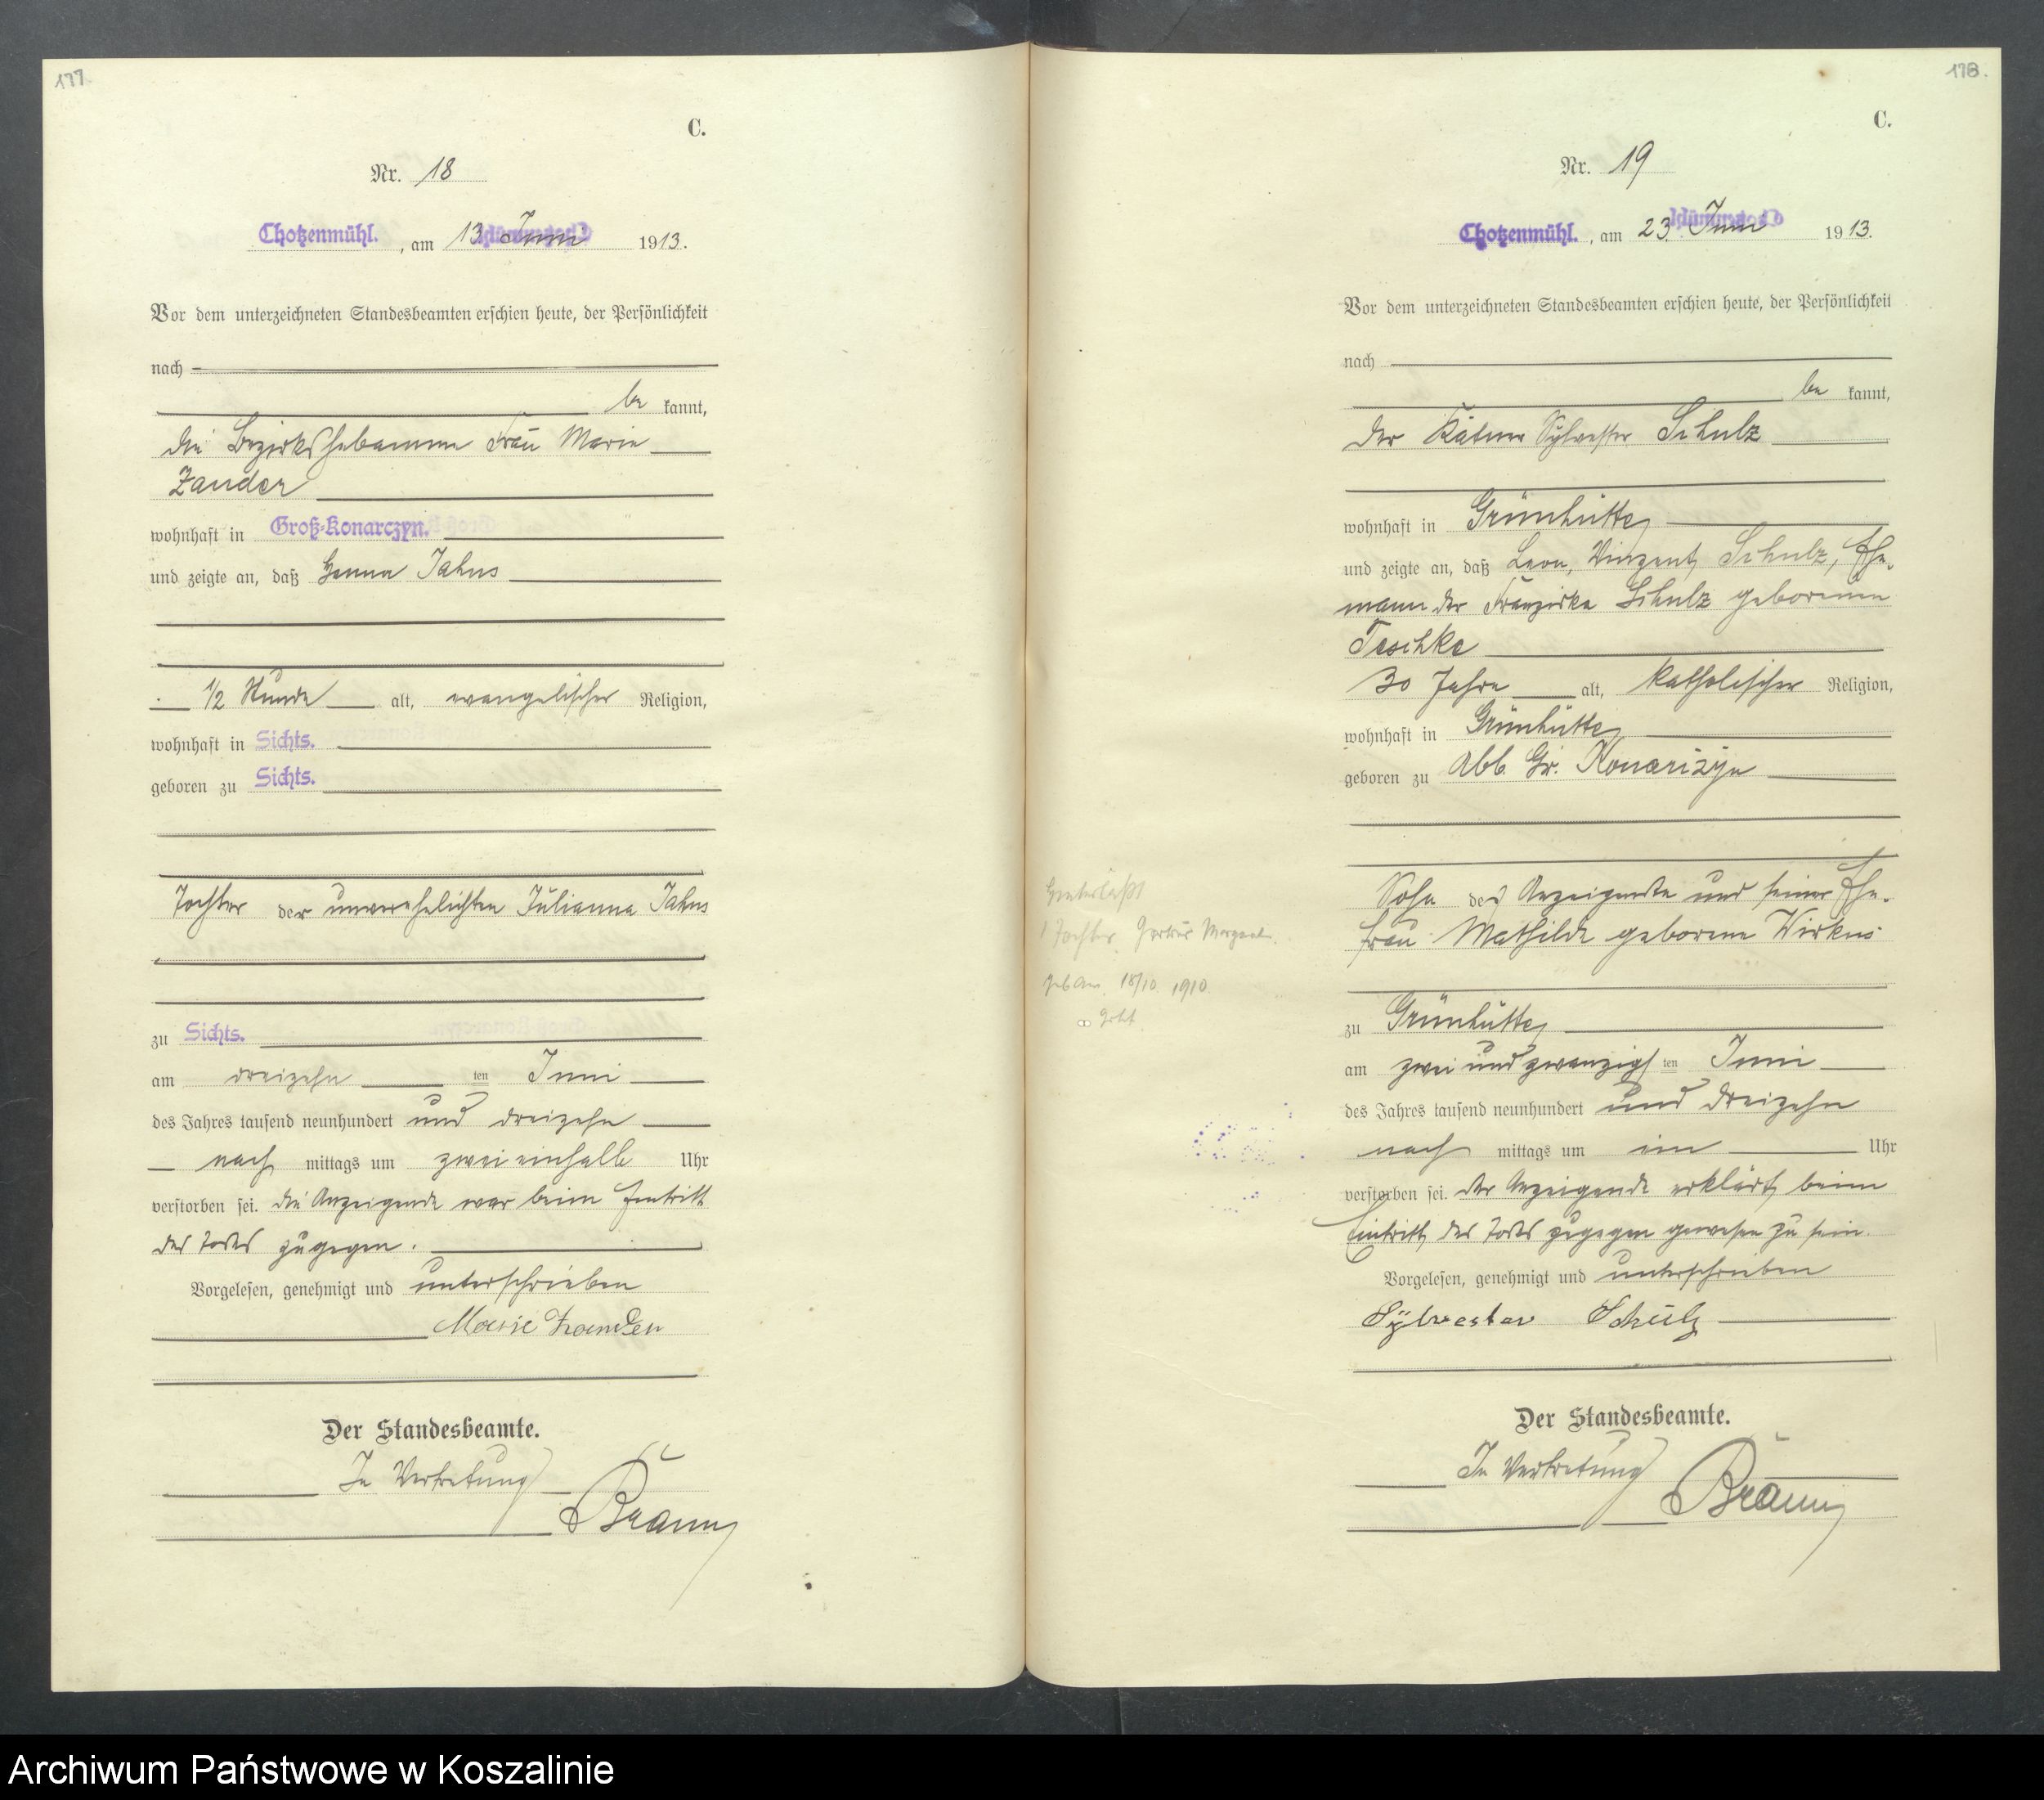 177.
C.
Nr. 18
Chotzenmühl. , am 13. Juni 1913.
Vor dem unterzeichneten Standesbeamten erschien heute, der Persönlichkeit
nach
be kannt,
die Bezirkshebamme Frau Marie
Zander
wohnhaft in Groß-Konarczyn.
und zeigte an, daß Henna Jahns
1/2 Stunde alt, evangelischer Religion,
wohnhaft in Sichts.
geboren zu Sichts.
Tochter der unverehelichten Julianna Jahns
zu Sichts.
am dreizehn ten Juni
des Jahres tausend neunhundert und dreizehn
nach mittags um zweieinhalb Uhr
verstorben sei. die Anzeigende war beim Eintritt
des Todes zugegen.
Vorgelesen, genehmigt und unterschrieben
Marie Zander
Der Standesbeamte.
In Vertretung
Braun
178.
C.
Nr. 19
Chotzenmühl. , am 23. Juni 1913.
Vor dem unterzeichneten Standesbeamten erschien heute, der Persönlichkeit
nach
be kannt,
der Kätner Sylvester Schulz
wohnhaft in Grünhütte
und zeigte an, daß Leon, Vinzent Schulz, Ehe-
mann der Franziska Schulz geborenen
Teschke
30 Jahre alt, katholischer Religion,
wohnhaft in Grünhütte
geboren zu Abb. Gr. Konarczyn
Sohn des Anzeigenden und seiner Ehe-
frau Mathilde geborene Wirkus
zu Grünhütte
am zwei und zwanzigs ten Juni
des Jahres tausend neunhundert und dreizehn
nach mittags um ein Uhr
verstorben sei. der Anzeigende erklärt, beim
Eintritt des Todes zugegen gewesen zu sein.
Vorgelesen, genehmigt und unterschrieben
Sylvester Schulz
Der Standesbeamte.
In Vertretung
Braun
Hinterläßt
1 Tochter Gertrud
geb am 18/10 1910
Archiwum Państwowe w Koszalinie